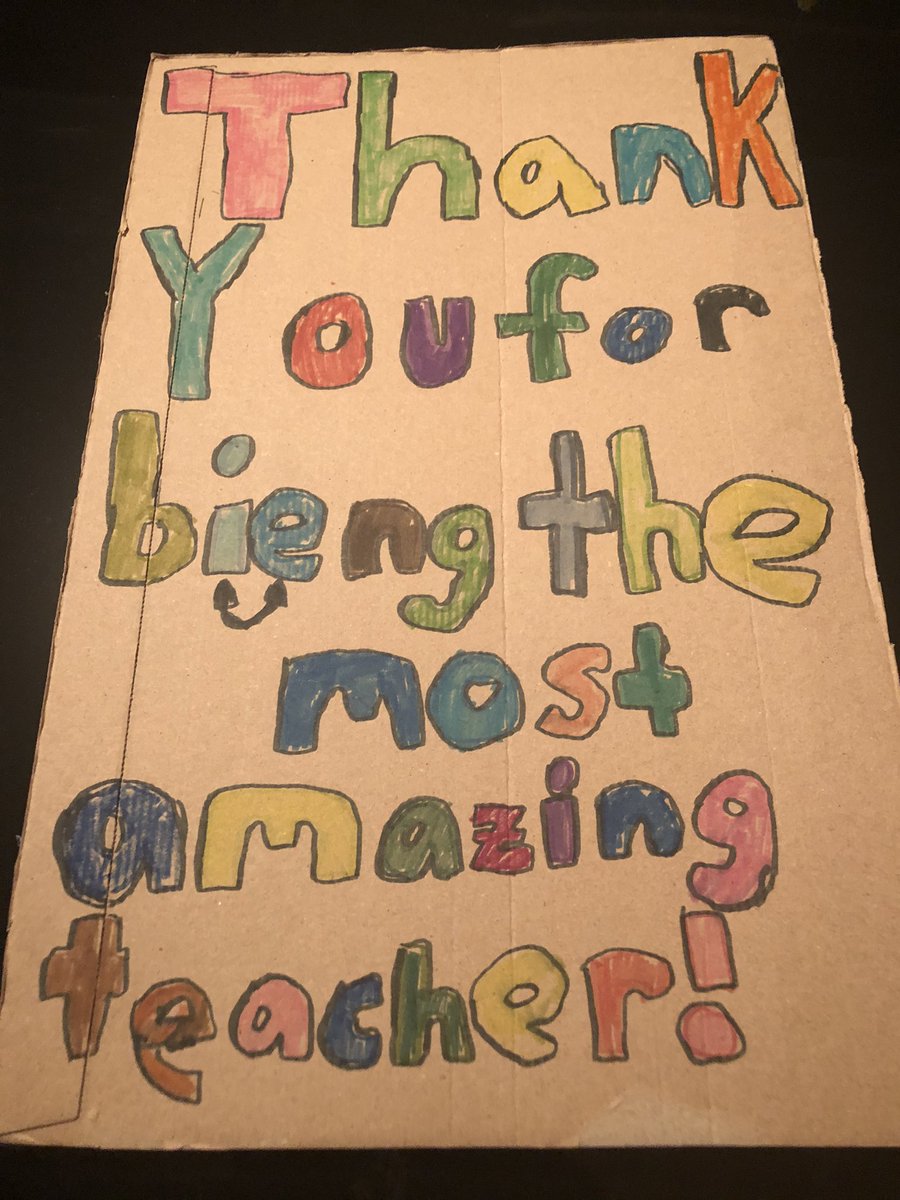 Thank
You for
bieng the
most
amazing
teacher!